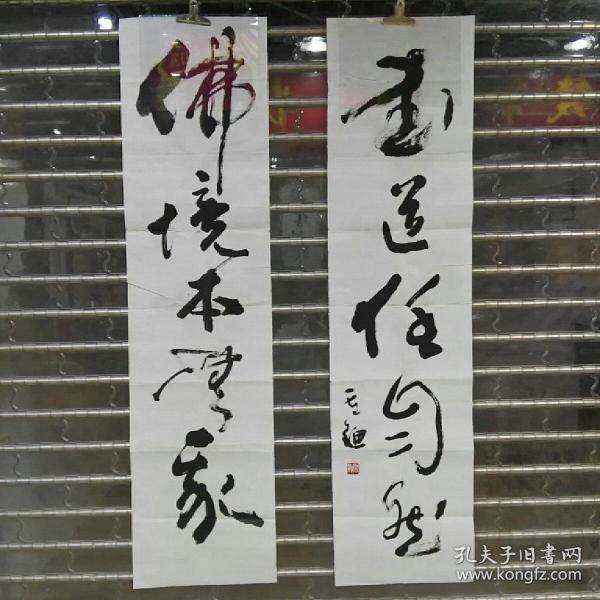 佛境本無我
書道任自然
孔夫子旧書网
www.kongfz.com